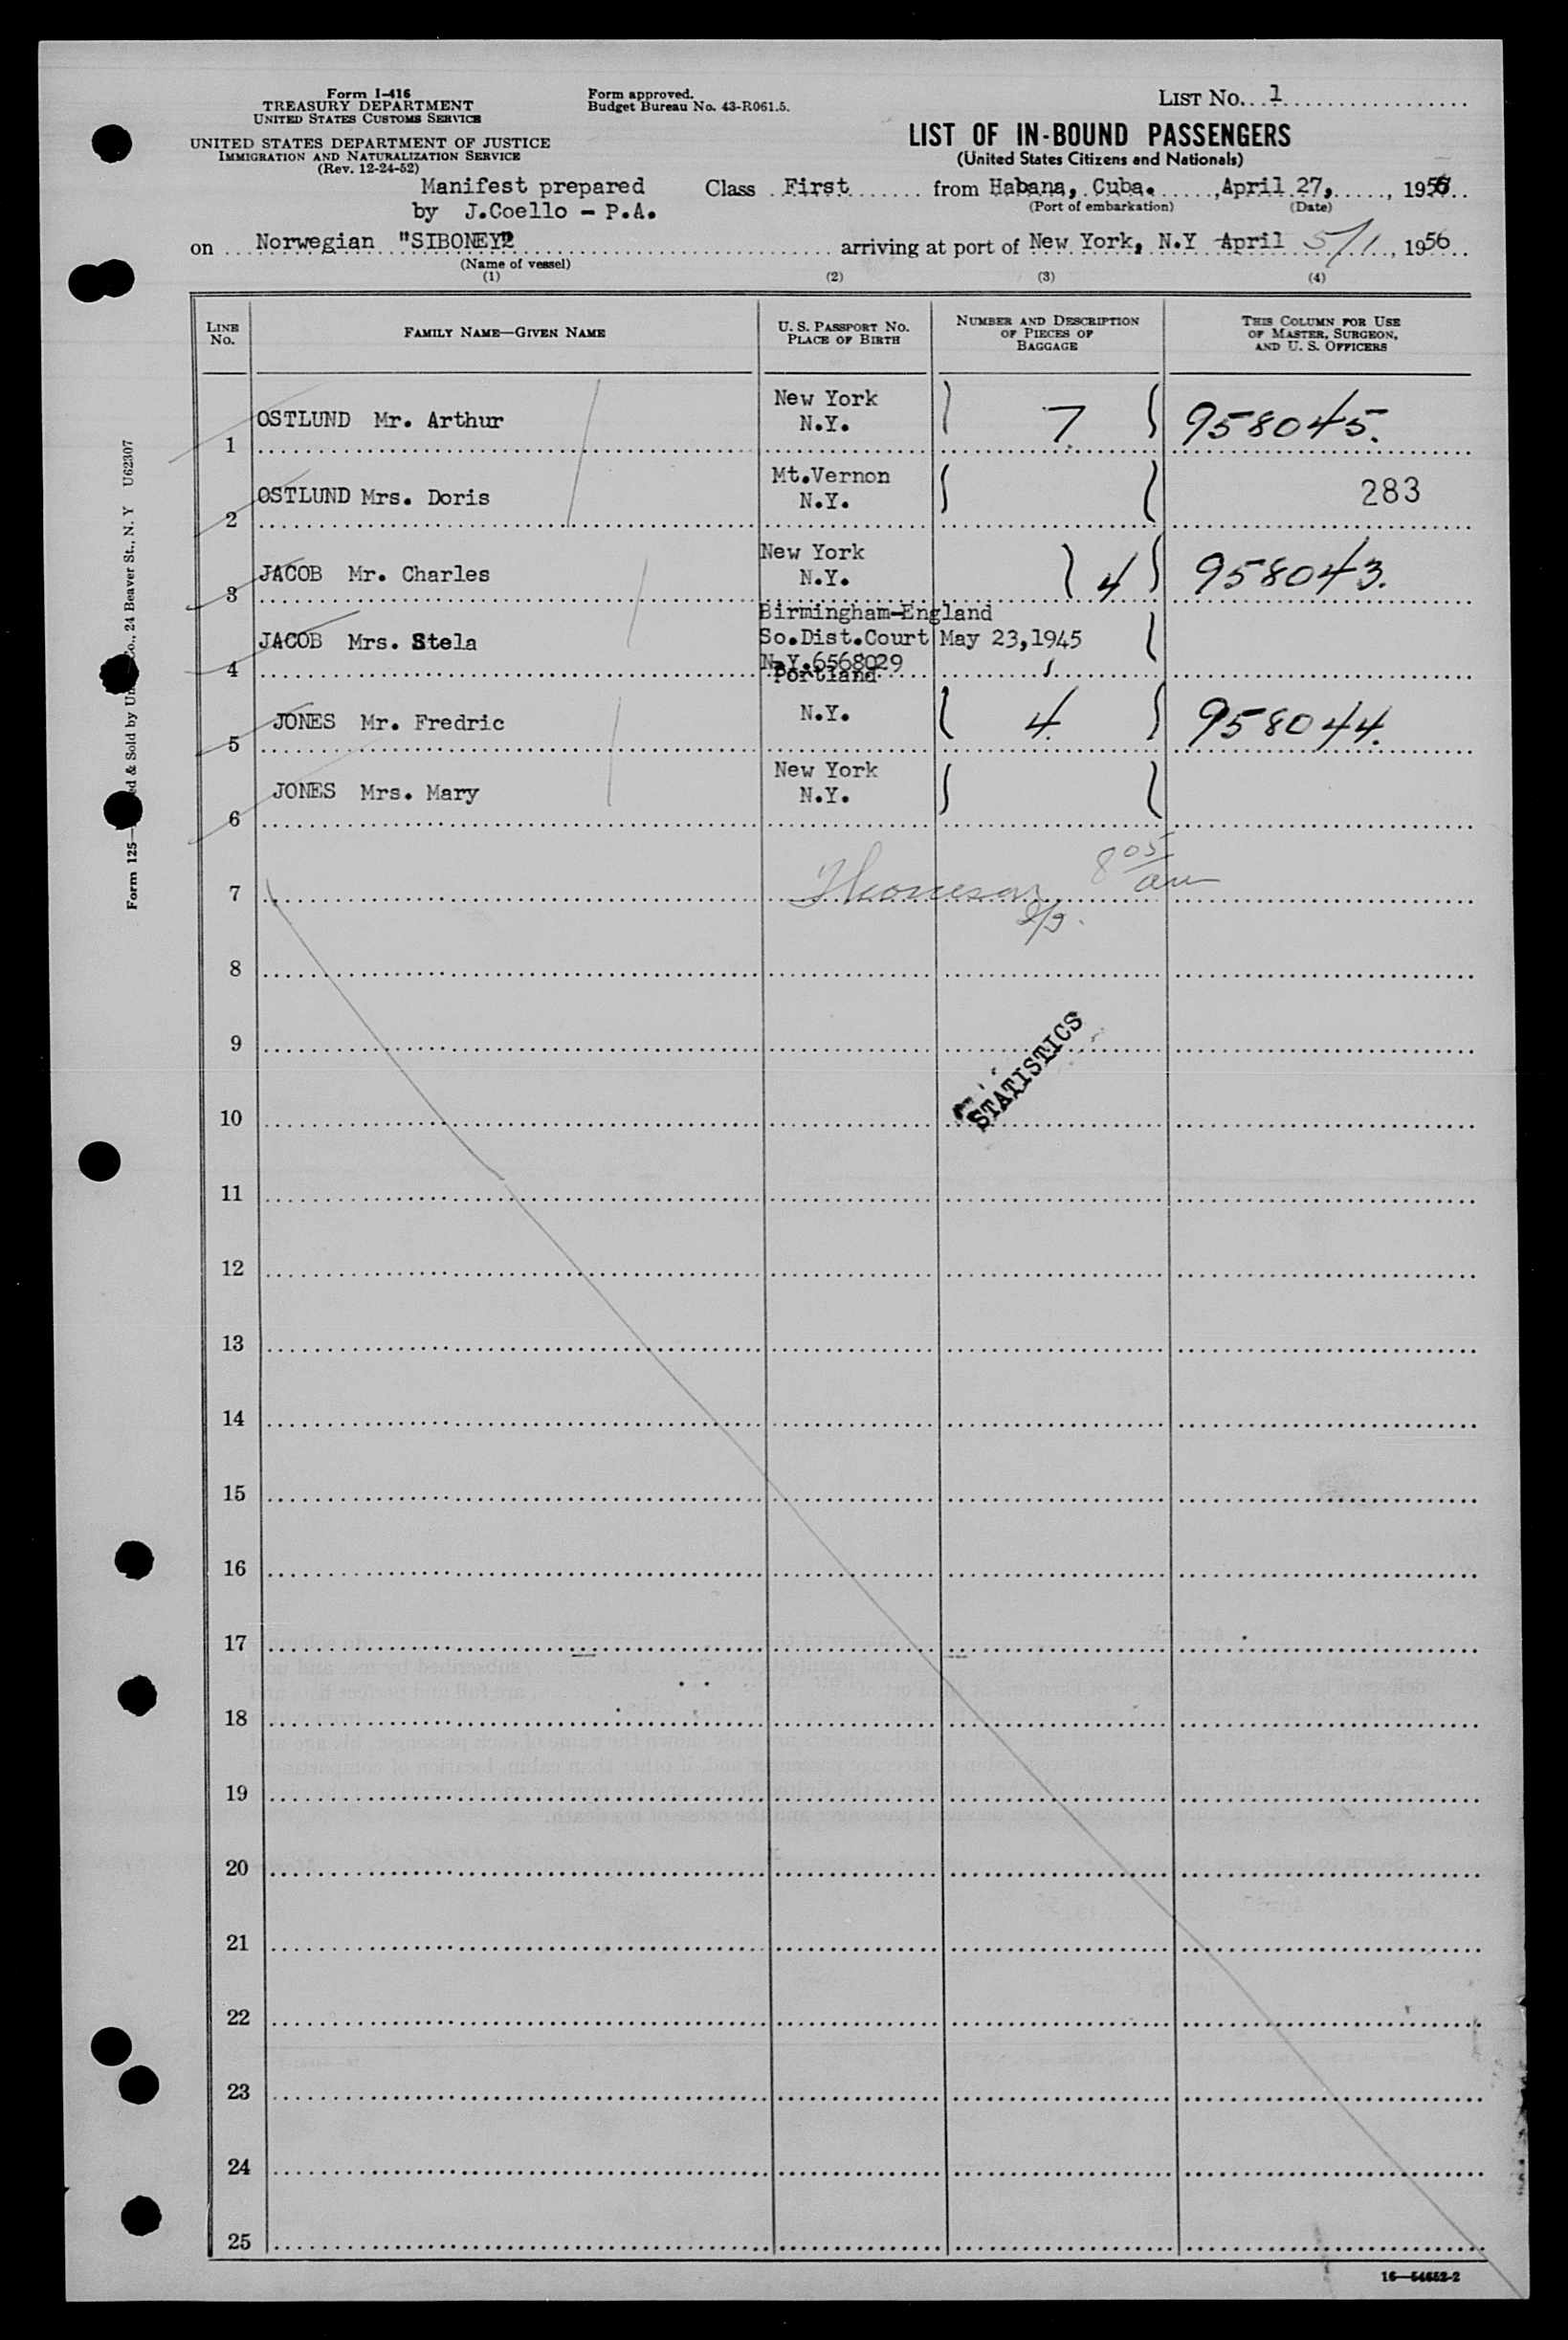 Form I-416
TREASURY DEPARTMENT
UNITED STATES CUSTOMS SERVICE
UNITED STATES DEPARTMENT OF JUSTICE
IMMIGRATION AND NATURALIZATION SERVICE
(Rev. 12-24-52)
Form approved.
Budget Bureau No. 43-R061.5.
LIST NO. 1
LIST OF IN-BOUND PASSENGERS
(United States Citizens and Nationals)
Manifest prepared
by J.Coello - P.A.
Class First from Habana, Cuba. , April 27, , 1956
(Port of embarkation) (Date)
on Norwegian "SIBONEY" arriving at port of New York, N.Y April 5/1, 1956
(Name of vessel)
(1) (2) (3) (4)
LINE NO. FAMILY NAME—GIVEN NAME U. S. PASSPORT NO. PLACE OF BIRTH NUMBER AND DESCRIPTION OF PIECES OF BAGGAGE THIS COLUMN FOR USE OF MASTER, SURGEON, AND U. S. OFFICERS
1 OSTLUND Mr. Arthur New York N.Y. 7. 958045.
2 OSTLUND Mrs. Doris Mt.Vernon N.Y. 283
3 JACOB Mr. Charles New York N.Y. 4 958043.
Birmingham-England
4 JACOB Mrs. Stela So.Dist.Court May 23,1945
N.Y.6568029
Portland
5 JONES Mr. Fredric N.Y. 4. 958044.
6 JONES Mrs. Mary New York N.Y.
8 05 am
7
8
9
STATISTICS
10
11
12
13
14
15
16
17
18
19
20
21
22
23
24
25
16—54652-2
Form 125— ed & Sold by Un Co., 24 Beaver St., N. Y U62307